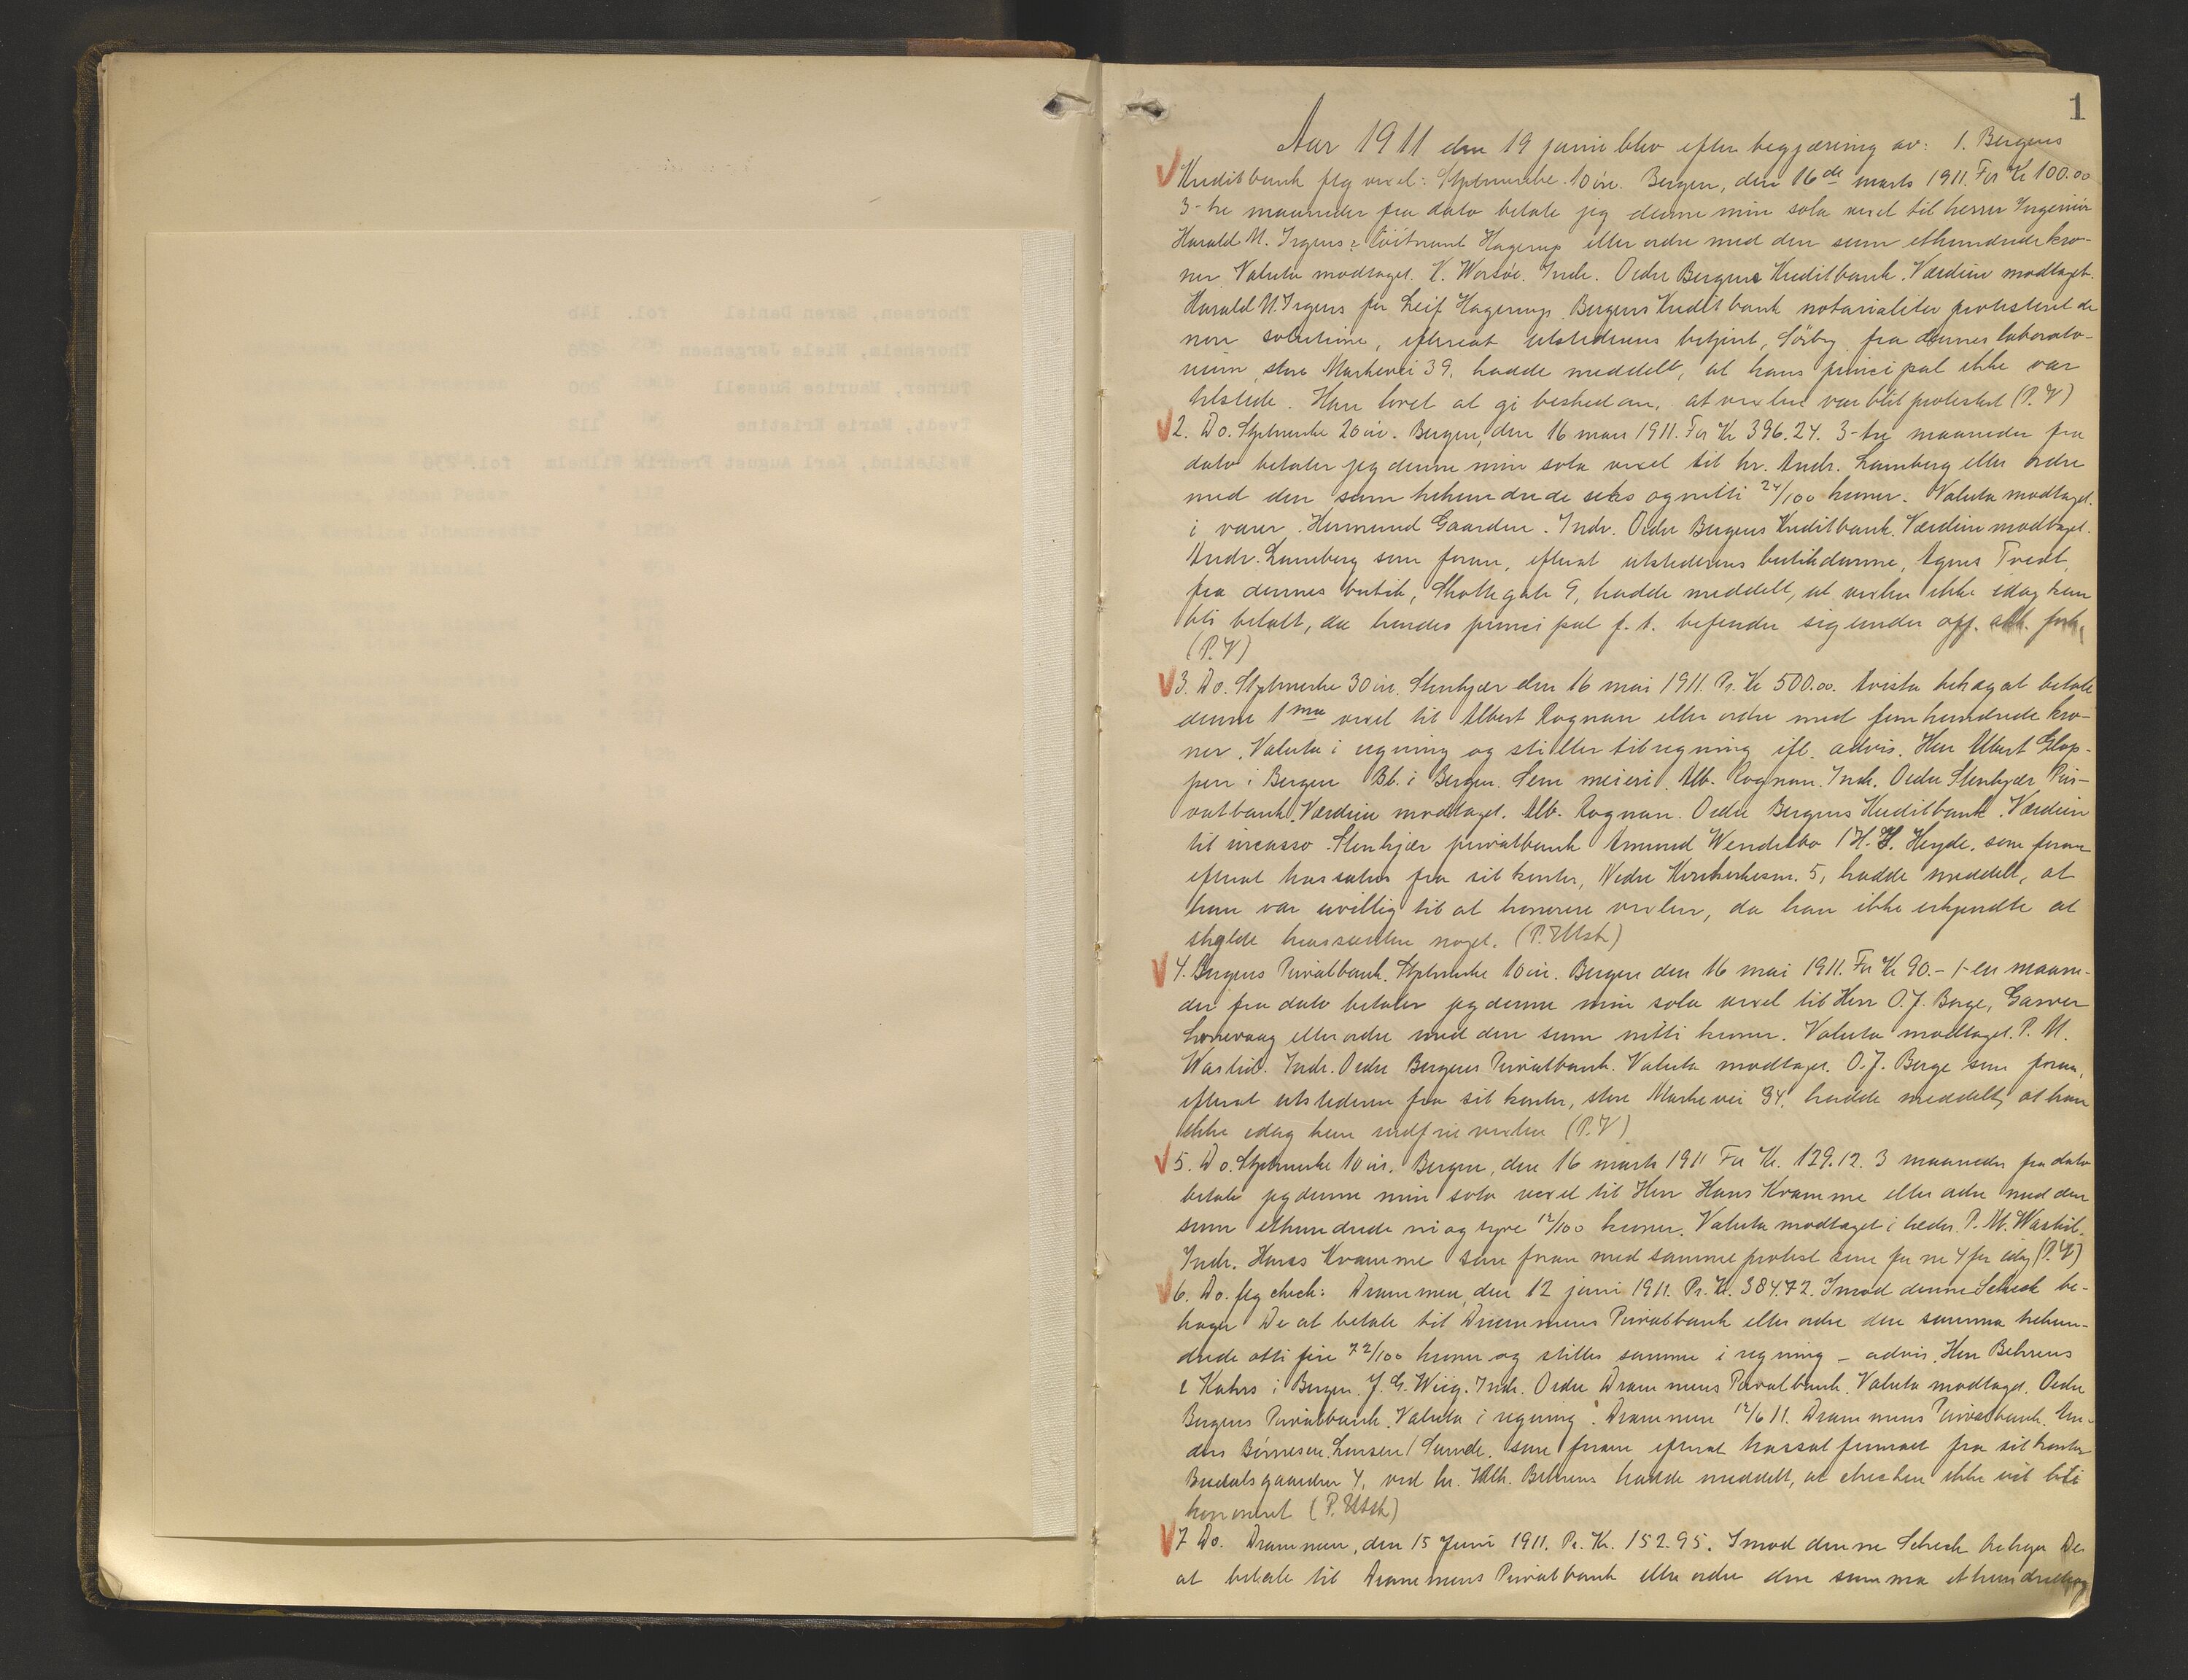 1
Aar 1911 den 19 juni blev efter begjæring av: 1. Bergens
Kreditbank flg vexel: Stpl.merke 10 øre. Bergen, den 16de marts 1911. For Kr 100.00
3-tre maaneder fra dato betale jeg denne min sola vexel til herrer Ingeniør
Harald N. Irgens & Løitnant Hagerup eller ordre med den sum ethundrede kro-
ner. Valuta modtaget. K. Worsøe. Indr. Ordre Bergens Kreditbank. Værdien modtaget.
Harald N. Irgens for Leif Hagerup. Bergens Kreditbank notarialiter protesteret de
non solutione, efterat utstederens betjent, Sörby, fra dennes laborato-
rium, store Markevei 39, hadde meddelt, at hans principal ikke var
tilstede. Han lovet at gi besked om, at vexlen var blit protestert (P.V)
2. Do. Stpl.merke 20 øre. Bergen, den 16 mars 1911. For Kr 396.24. 3-tre maaneder fra
dato betaler jeg denne min sola vexel til hr. Andr. Lamberg eller ordre
med den sum trehundrede seks og nitti 24/100 kroner. Valuta modtaget
i varer. Hermund Gaarden. Indr. Ordre Bergens Kreditbank. Værdien modtaget.
Andr. Lamberg som foran, efterat utstederens butikdame, Agnes Tvedt,
fra dennes butik, Skottegate 9, hadde meddelt, at vexlen ikke idag kan
bli betalt, da hendes principal f.t. befinder sig under off. akk. forh.
(P.V)
3. Do. Stpl.merke 30 øre. Stenkjær den 16 mai 1911. Pr. Kr 500.00. Avista behag at betale
denne 1ma vexel til Albert Rognan eller ordre med fem hundrede kro-
ner. Valuta i regning og stilles til regning ifl. advis. Herr Albert Glop-
pen i Bergen Bb. i Bergen. Sem meieri. Alb. Rognan. Indr. Ordre Stenkjær Pri-
vatbank. Værdien modtaget. Alb. Rognan. Ordre Bergens Kreditbank. Værdien
til incasso. Stenkjær privatbank Amund Wendelbo / H. H. Heyde, som foran
efterat trassatus fra sit kontor, Nedre Korskirkesm. 5, hadde meddelt, at
han var uvillig til at honorere vexlen, da han ikke erkjendte at
skylde trassenten noget. (P. Utst)
4. Bergens Privatbank. Stpl.merke 10 øre. Bergen den 16 mai 1911. For Kr 90.- 1-en maane-
der fra dato betaler jeg denne min sola vexel til Herr O. J. Berge, Garver
eller ordre med den sum nitti kroner. Valuta modtaget. P. M.
Wastid. Indr. Ordre Bergens Privatbank. Valuta modtaget. O. J. Berge som foran,
efterat utstederen fra sit kontor, store Markevei 34, hadde meddelt, at han
ikke idag kan indfrie vexlen (P.V)
5. Do. Stpl.merke 10 øre. Bergen, den 16 marts 1911 For Kr. 129.12. 3 maaneder fra dato
betale jeg denne min sola vexel til Herr Hans Kramme eller ordre med den
sum ethundrede ni og tyve 12/100 kroner. Valuta modtaget i læder. P. M. Wastid.
Indr. Hans Kramme som foran med samme protest som for nr 4 for idag (P.V)
6. Do. flg check: Drammen, den 12 juni 1911. Pr. Kr. 384.72. Imod denne Scheck be-
hager De at betale til Drammens Privatbank eller ordre den summa trehun-
drede otti fire 72/100 kroner og stilles samme i regning - advis. Herr Behrens
& Kahrs i Bergen. J. G. Wiig. Indr. Ordre Drammens Privatbank. Valuta modtaget. Ordre
Bergens Privatbank. Valuta i regning. Drammen 12/6 11. Drammens Privatbank. An-
ders Börresen Larsen / Sunde, som foran efterat trassat firmaet fra sit kontor
4, ved hr. Behrens hadde meddelt, at checken ikke vil bli
honoreret (P. Utst)
7 Do. Drammen, den 15 Juni 1911. Pr. Kr. 152.95. Imod denne Scheck behager De
at betale til Drammens Privatbank eller ordre den summa ethundrede og